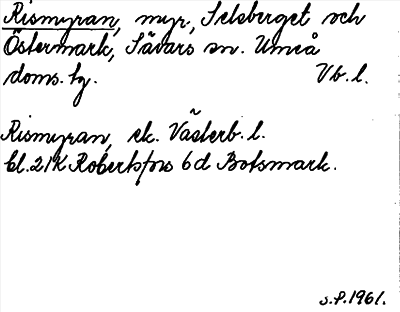 Rismyran, myr, Selsberget och
Östermark, Sävars sn. Umeå
doms. tg. Vb. l.
Rismyran, ek. Västerb. l.
bl. 21K Robertsfors 6d Botsmark.
s. P. 1961.